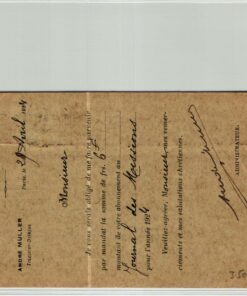 ANDRÉ MULLER
Paris, le 29 Avril 1924
Monsieur
Je vous serais obligé de me faire parvenir
par mandat la somme de frs 6
montant de votre abonnement au
Journal des Missions
pour l'année 1924
Veuillez agréer, Monsieur, mes remer-
ciements et mes salutations chrétiennes.
ADMINISTRATEUR.
3.50